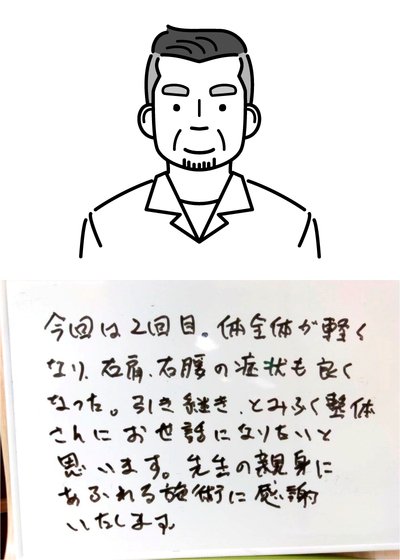 今回は2回目。体全体が軽く
なり、右肩、右腰の症状も良く
なった。引き継き、とみふく整体
さんにお世話になりたいと
思います。先生の親身に
あふれる施術に感謝
いたします。